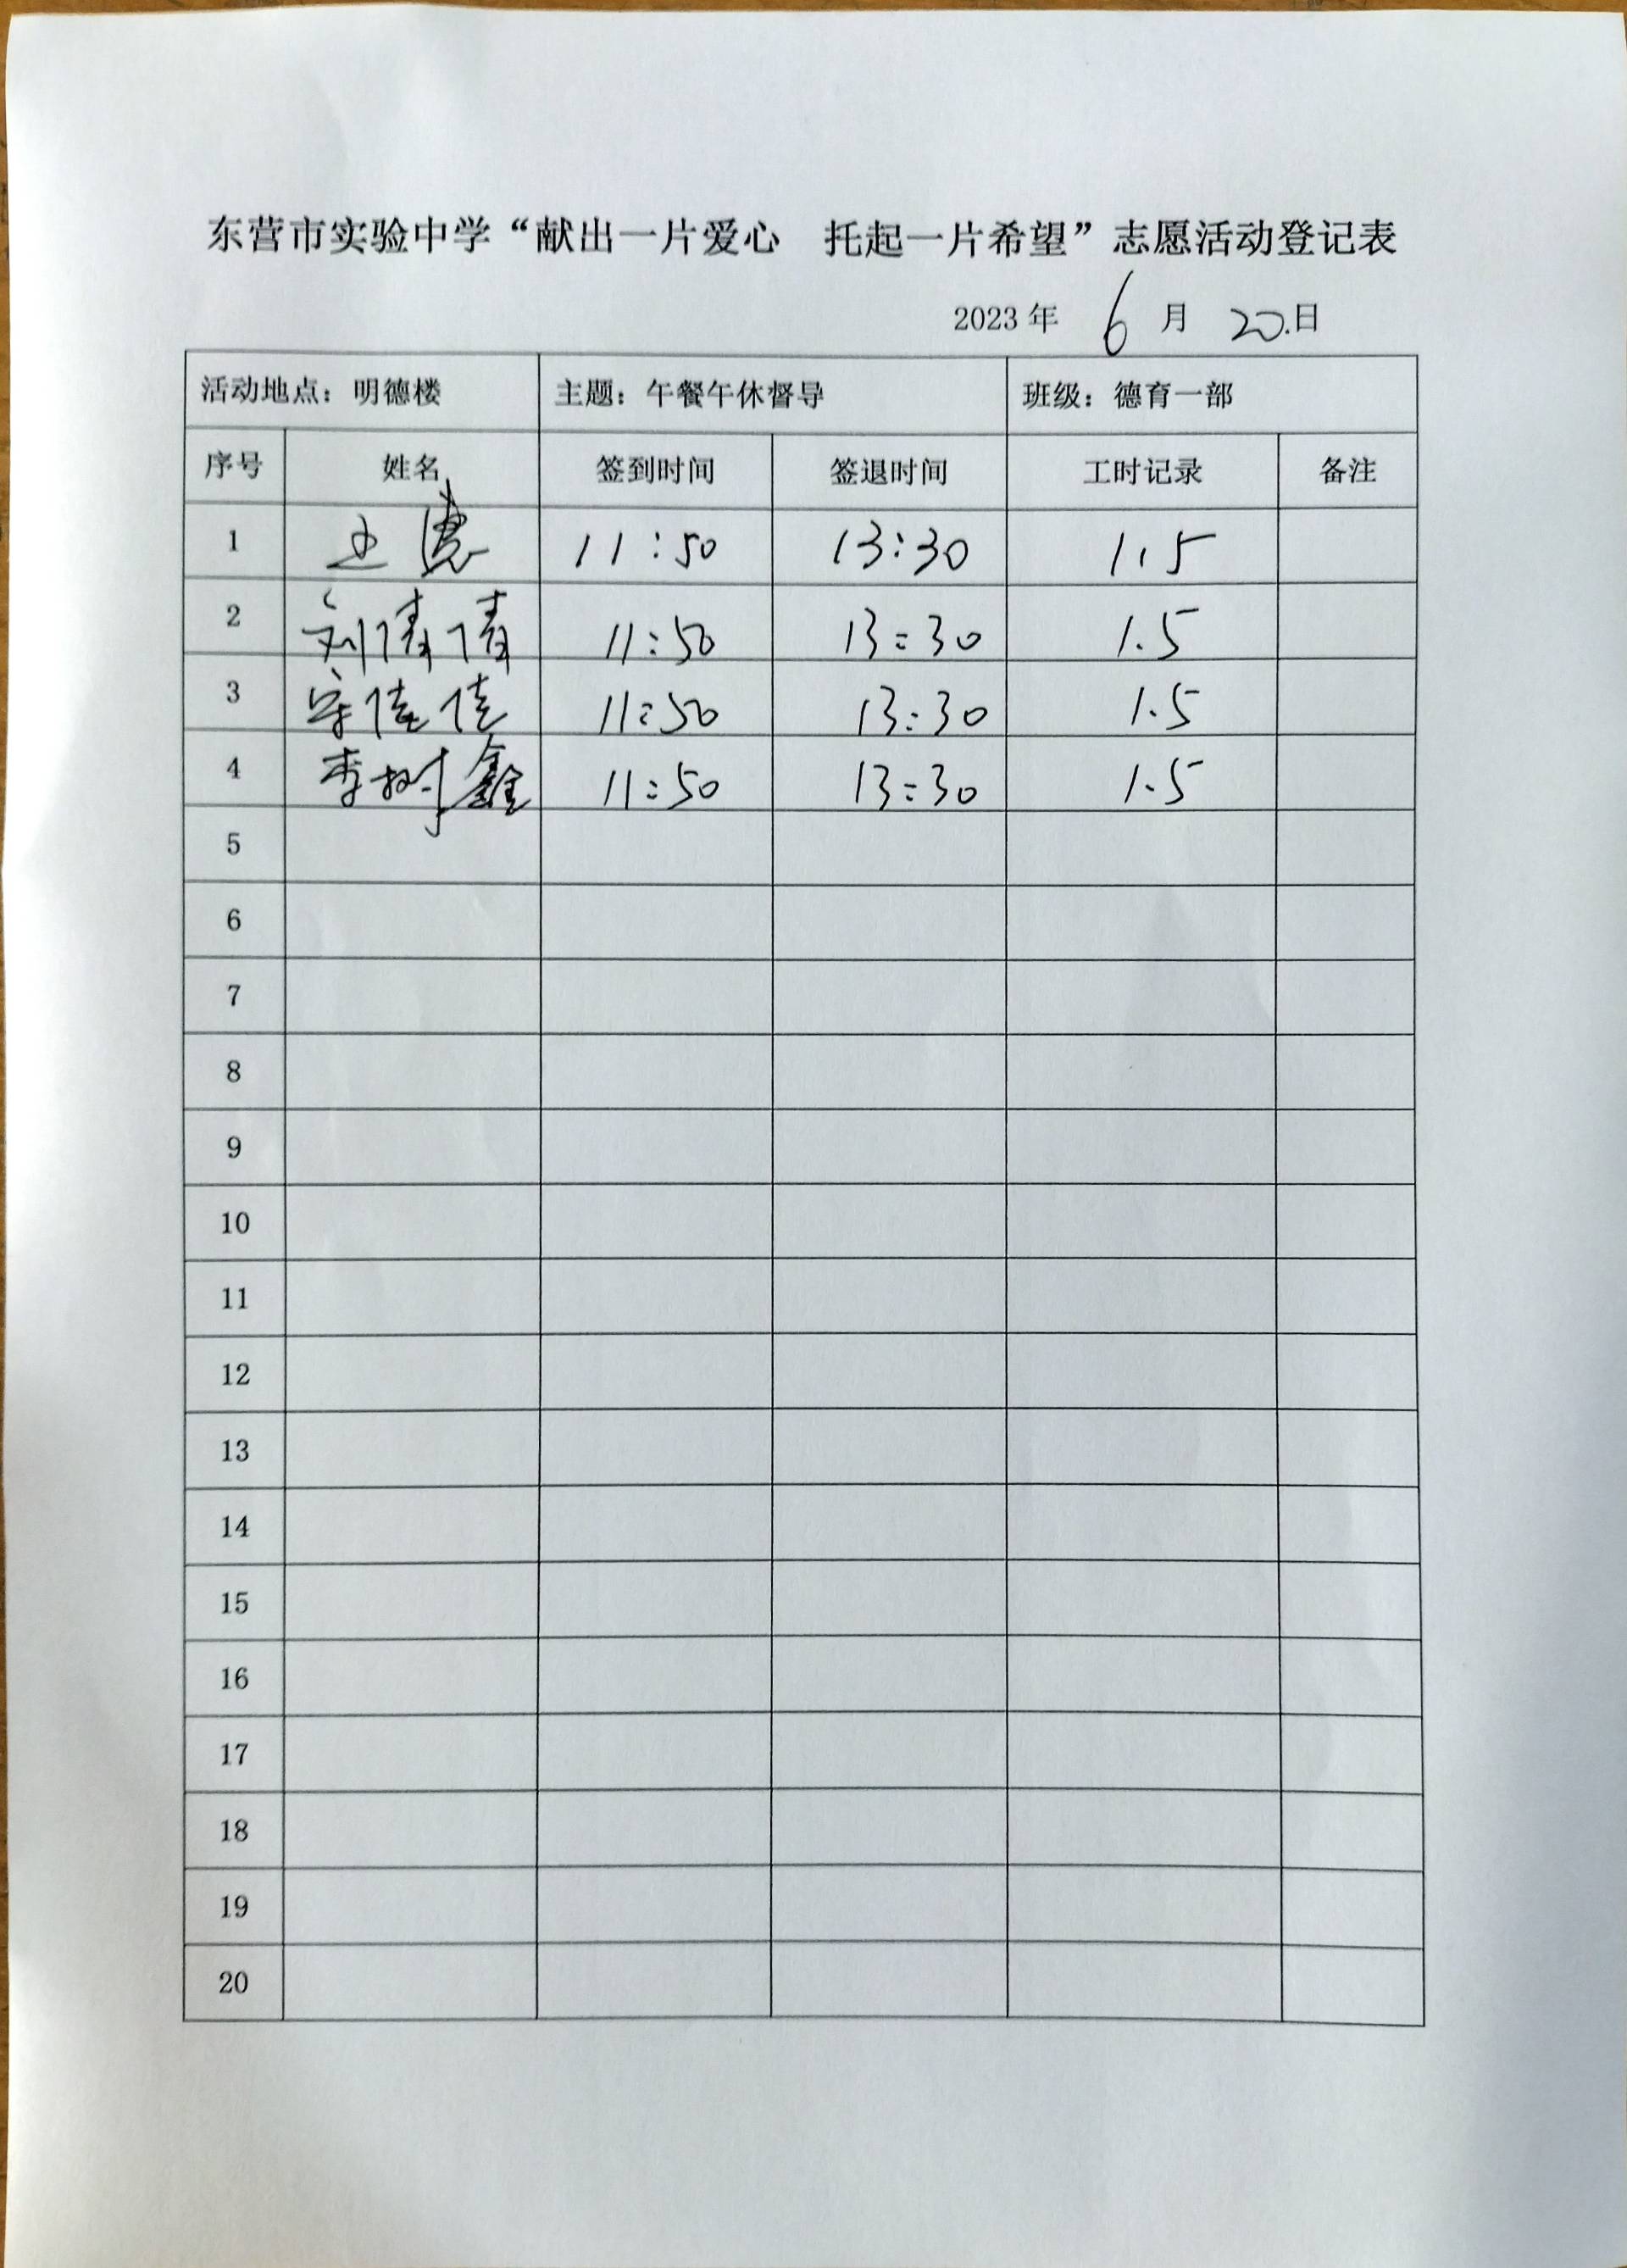 东营市实验中学“献出一片爱心 托起一片希望”志愿活动登记表
2023 年 6 月 20.日
活动地点：明德楼 主题：午餐午休督导 班级：德育一部
序号 姓名 签到时间 签退时间 工时记录 备注
1 王 11:50 13:30 1.5
2 刘倩倩 11:50 13:30 1.5
3 宋佳佳 11:50 13:30 1.5
4 李树鑫 11:50 13:30 1.5
5
6
7
8
9
10
11
12
13
14
15
16
17
18
19
20